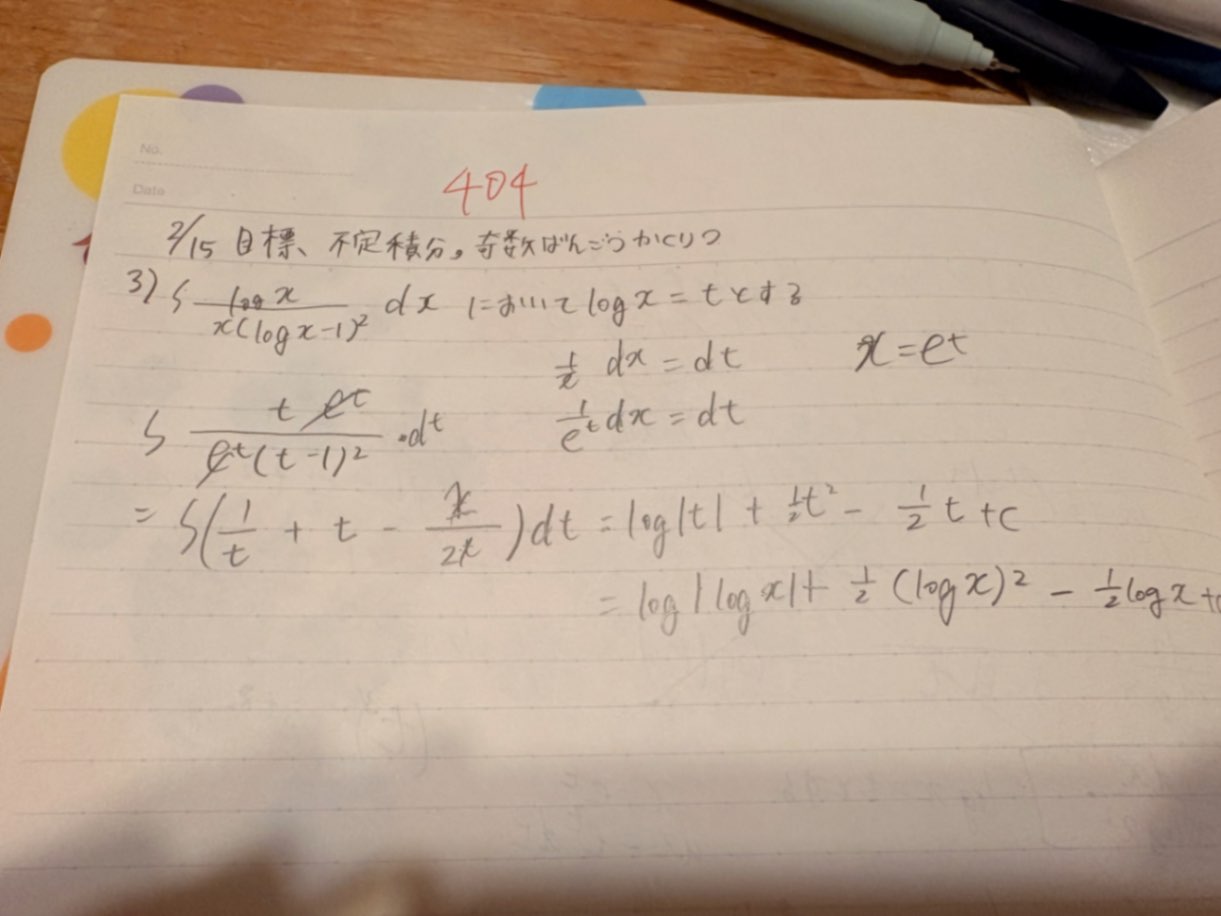 No.
Date
404
2/15 目標、不定積分。奇数ばんごうかくりつ
3) ∫ log x / x(log x - 1)² dx において log x = t とする
1/x dx = dt x = e^t
∫ t e^t / e^t (t - 1)² ・dt 1/e^t dx = dt
= ∫(1/t + t - t/2t) dt = log|t| + 1/2 t² - 1/2 t + c
= log|log x| + 1/2 (log x)² - 1/2 log x + c